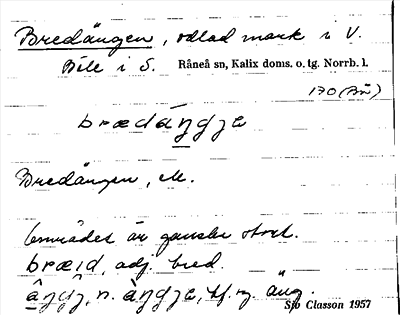 Bredängen, odlad mark i V.
Böle i S. Råneå sn, Kalix doms. o. tg. Norrb. l.
130 (Bn)
brædáŋgja
Bredängen, äl.
Området är ganska stort.
bræid, adj. bred.
n. sf. äng.
Sjö Classon 1957